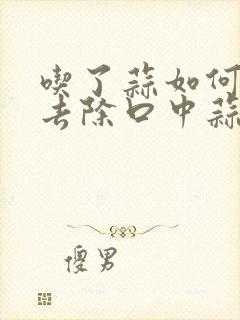 喫了蒜如何
去除口中蒜
傻男